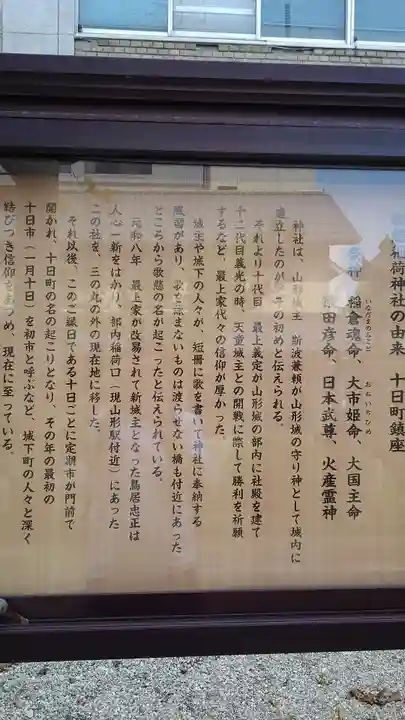 荷神社の由来　十日町鎮座
稲倉魂命、大市姫命、大国主命
いなだまのみこと　おおいちひめ
田彦命、日本武尊、火産霊神
神社は、山形城主　斯波兼頼が山形城の守り神として城内に
建立したのが　その初めと伝えられる。
それより十代目　最上義定が山形城の郭内に社殿を建て
十二代目義光の時、天童城主との開戦に際して勝利を祈願
するなど、最上家代々の信仰が厚かった。
城主や城下の人々が、短冊に歌を書いて神社に奉納する
風習があり、歌を詠まないものは渡らせない橋も付近にあった
ところから歌懸の名が起こったと伝えられている。
元和八年、最上家が改易されて新城主となった鳥居忠正は
人心一新をはかり、郭内稲荷口（現山形駅付近）にあった
この社を、三の丸の外の現在地に移した。
それ以後、このご縁日である十日ごとに定期市が門前で
開かれ、十日町の名の起こりとなり、その年の最初の
十日市（一月十日）を初市と呼ぶなど、城下町の人々と深く
結びつき信仰をあつめ、現在に至っている。